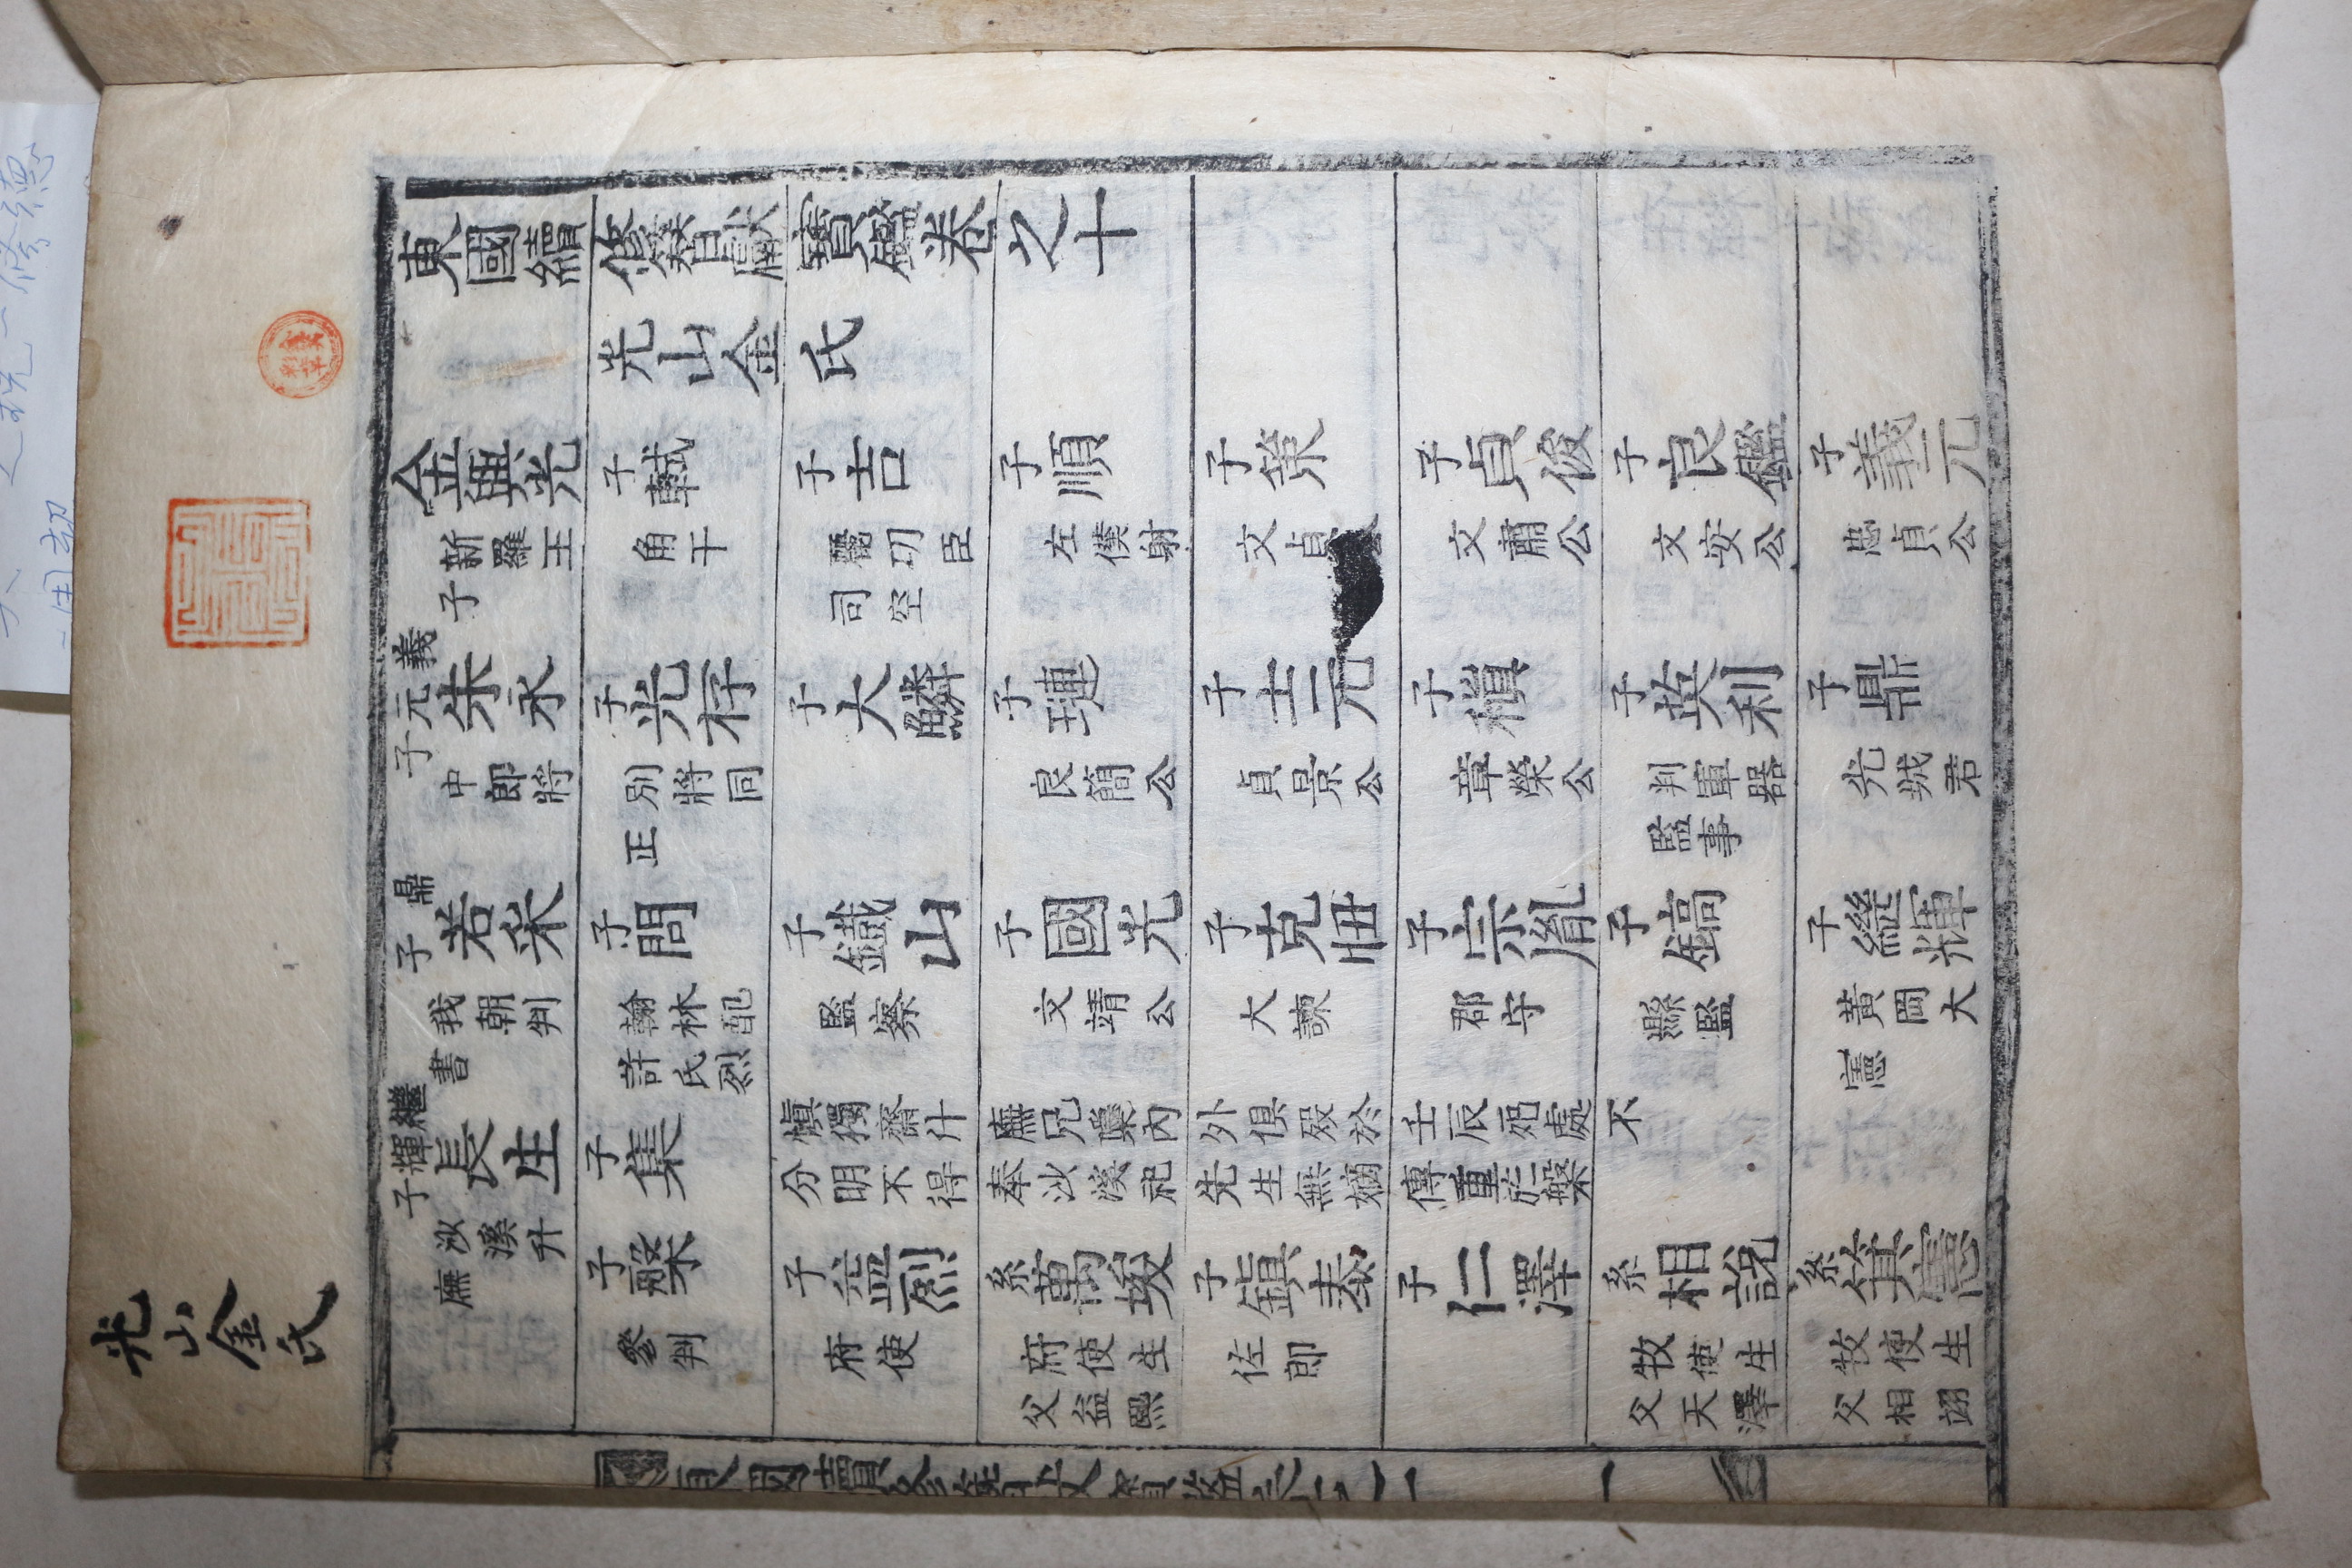 東國續修簪獻寶鑑卷之十
光山金氏
金興光 新羅王子 子軾 角干 子吉 功臣司空 子順 左僕射 子策 文貞 子貞俊 文肅公 子良鑑 文安公 子義元 思貞公
義元子朱永 中郎將 子光存 別將同正 子大鱗 子璉 良簡公 子士元 貞景公 子稹 章榮公 子英利 判軍器監事 子鼎 光城君
鼎子若采 我朝判書 子問 翰林配許氏烈 子鐵山 監察 子國光 文靖公 子克忸 大諫 子宗胤 郡守 子鎬 縣監 子繼輝 黃岡大憲
繼輝子長生 沙溪升廡 子集 愼獨齋升廡兄檃內外俱歿於壬辰死處不分明不得奉沙溪祀先生無嫡傳重於槃
子槃 參判 子益烈 府使 系萬埈 府使生父益熙 子鎭泰 佐郎 子仁澤 系相說 牧使生父天澤 系箕憲 牧使生父相翊
光山金氏